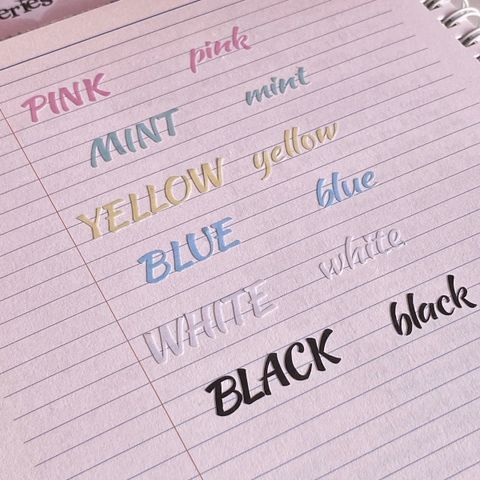 eries
PINK pink
MINT mint
YELLOW yellow
BLUE blue
WHITE white
BLACK black